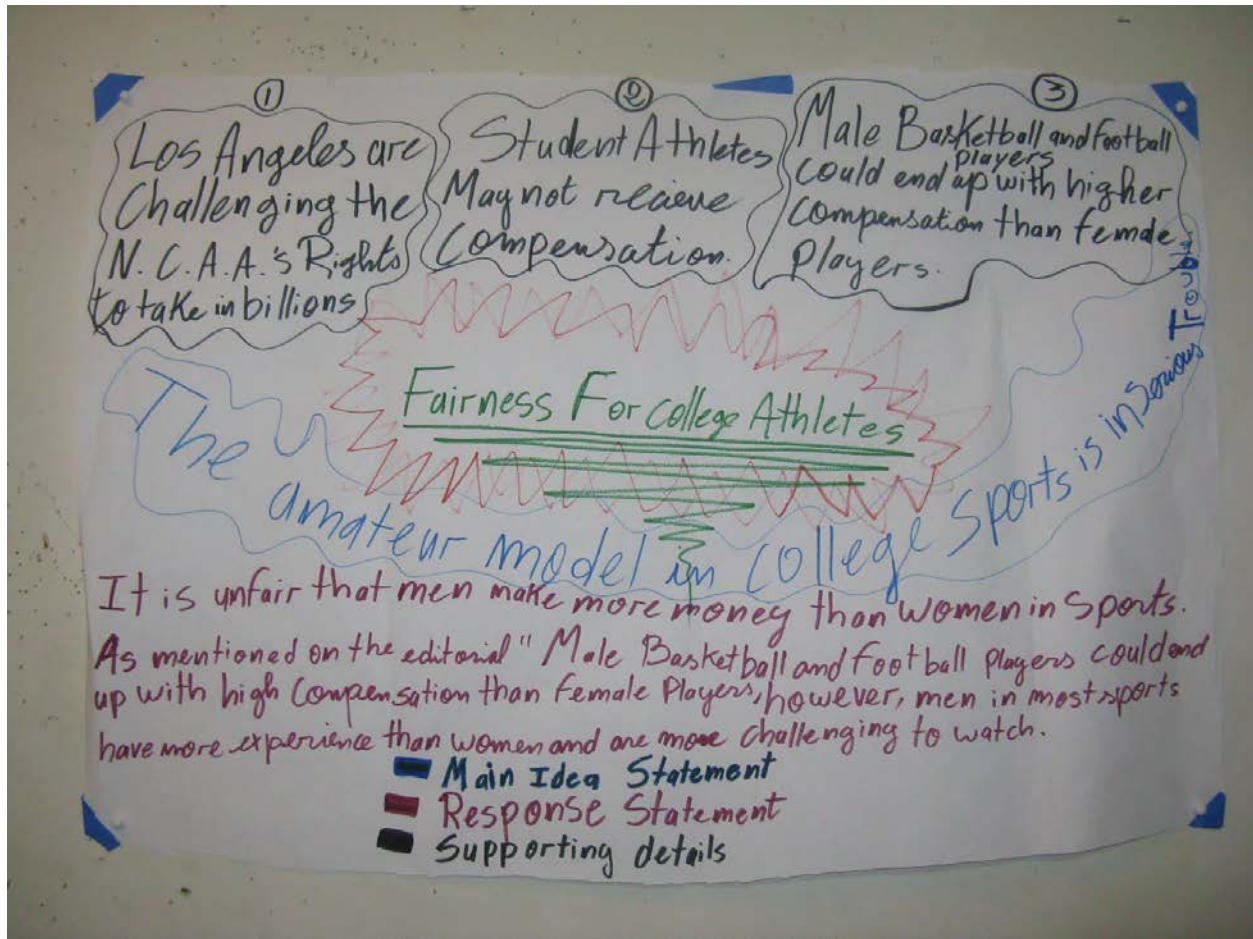 ①
Los Angeles are
Challenging the
N.C.A.A.'s Rights
to take in billions
②
Student Athletes
May not recieve
Compensation.
③
Male Basketball and football
players
could end up with higher
compensation than female
Players.
Fairness For college Athletes
The amateur model in college sports is in Serious Trouble.
It is unfair that men make more money than women in Sports.
As mentioned on the editorial "Male Basketball and football players could end
up with high Compensation than female Players, however, men in most sports
have more experience than women and are more challenging to watch.
Main Idea Statement
Response Statement
Supporting details